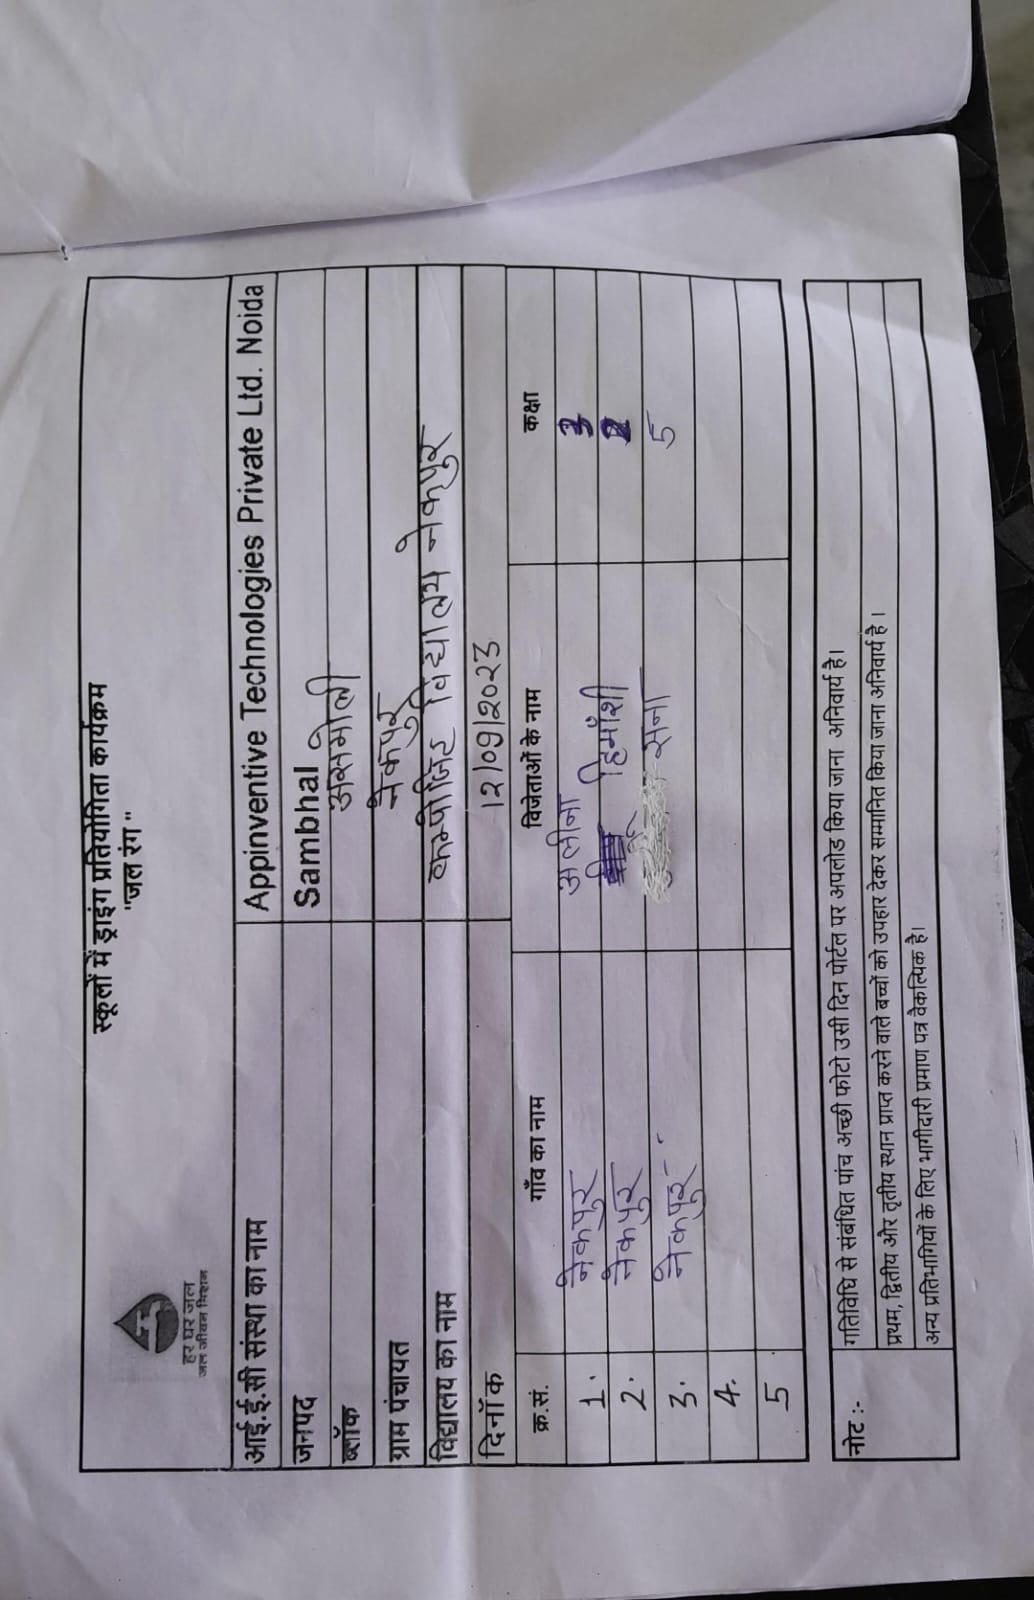 हर घर जल
जल जीवन मिशन
स्कूलों में ड्राइंग प्रतियोगिता कार्यक्रम
"जल रंग"
आई.ई.सी संस्था का नाम Appinventive Technologies Private Ltd. Noida
जनपद Sambhal
ब्लॉक असमोली
ग्राम पंचायत नेकपुर
विद्यालय का नाम कम्पोजिट विद्यालय नेकपुर
दिनाँक 12/09/2023
क्र.सं. गाँव का नाम विजेताओं के नाम कक्षा
1. नेकपुर अलीना 3
2. नेकपुर हिमाँशी
3. नेकपुर सना 5
4.
5
नोट :- गतिविधि से संबंधित पांच अच्छी फोटो उसी दिन पोर्टल पर अपलोड किया जाना अनिवार्य है।
प्रथम, द्वितीय और तृतीय स्थान प्राप्त करने वाले बच्चों को उपहार देकर सम्मानित किया जाना अनिवार्य है।
अन्य प्रतिभागियों के लिए भागीदारी प्रमाण पत्र वैकल्पिक है।